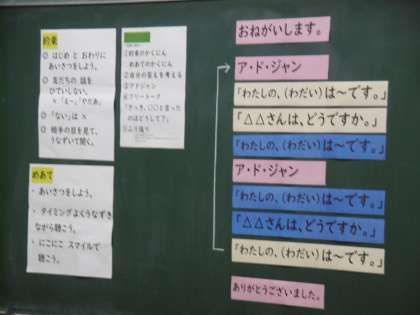 約束
◎ はじめ と おわりに
あいさつをしよう。
◎ 友だちの 話を
ひていしない。
× 「え〜」「やだぁ」
◎ 「ない」は ×
◎ 相手の目を見て、
うなずいて聞く。
めあて
・あいさつをしよう。
・タイミングよくうなずき
ながら聴こう。
・にこにこ スマイルで
聴こう。
①約束のかくにん
めあてのかくにん
②自分の答えを考える
③アドジャン
④フリートーク
「さっき、○○と言った
のはどうして?」
⑤ふり返り
おねがいします。
ア・ド・ジャン
「わたしの、(わだい)は〜です。」
「△△さんは、どうですか。」
「わたしの、(わだい)は〜です。」
ア・ド・ジャン
「わたしの、(わだい)は〜です。」
「△△さんは、どうですか。」
「わたしの、(わだい)は〜です。」
ありがとうございました。